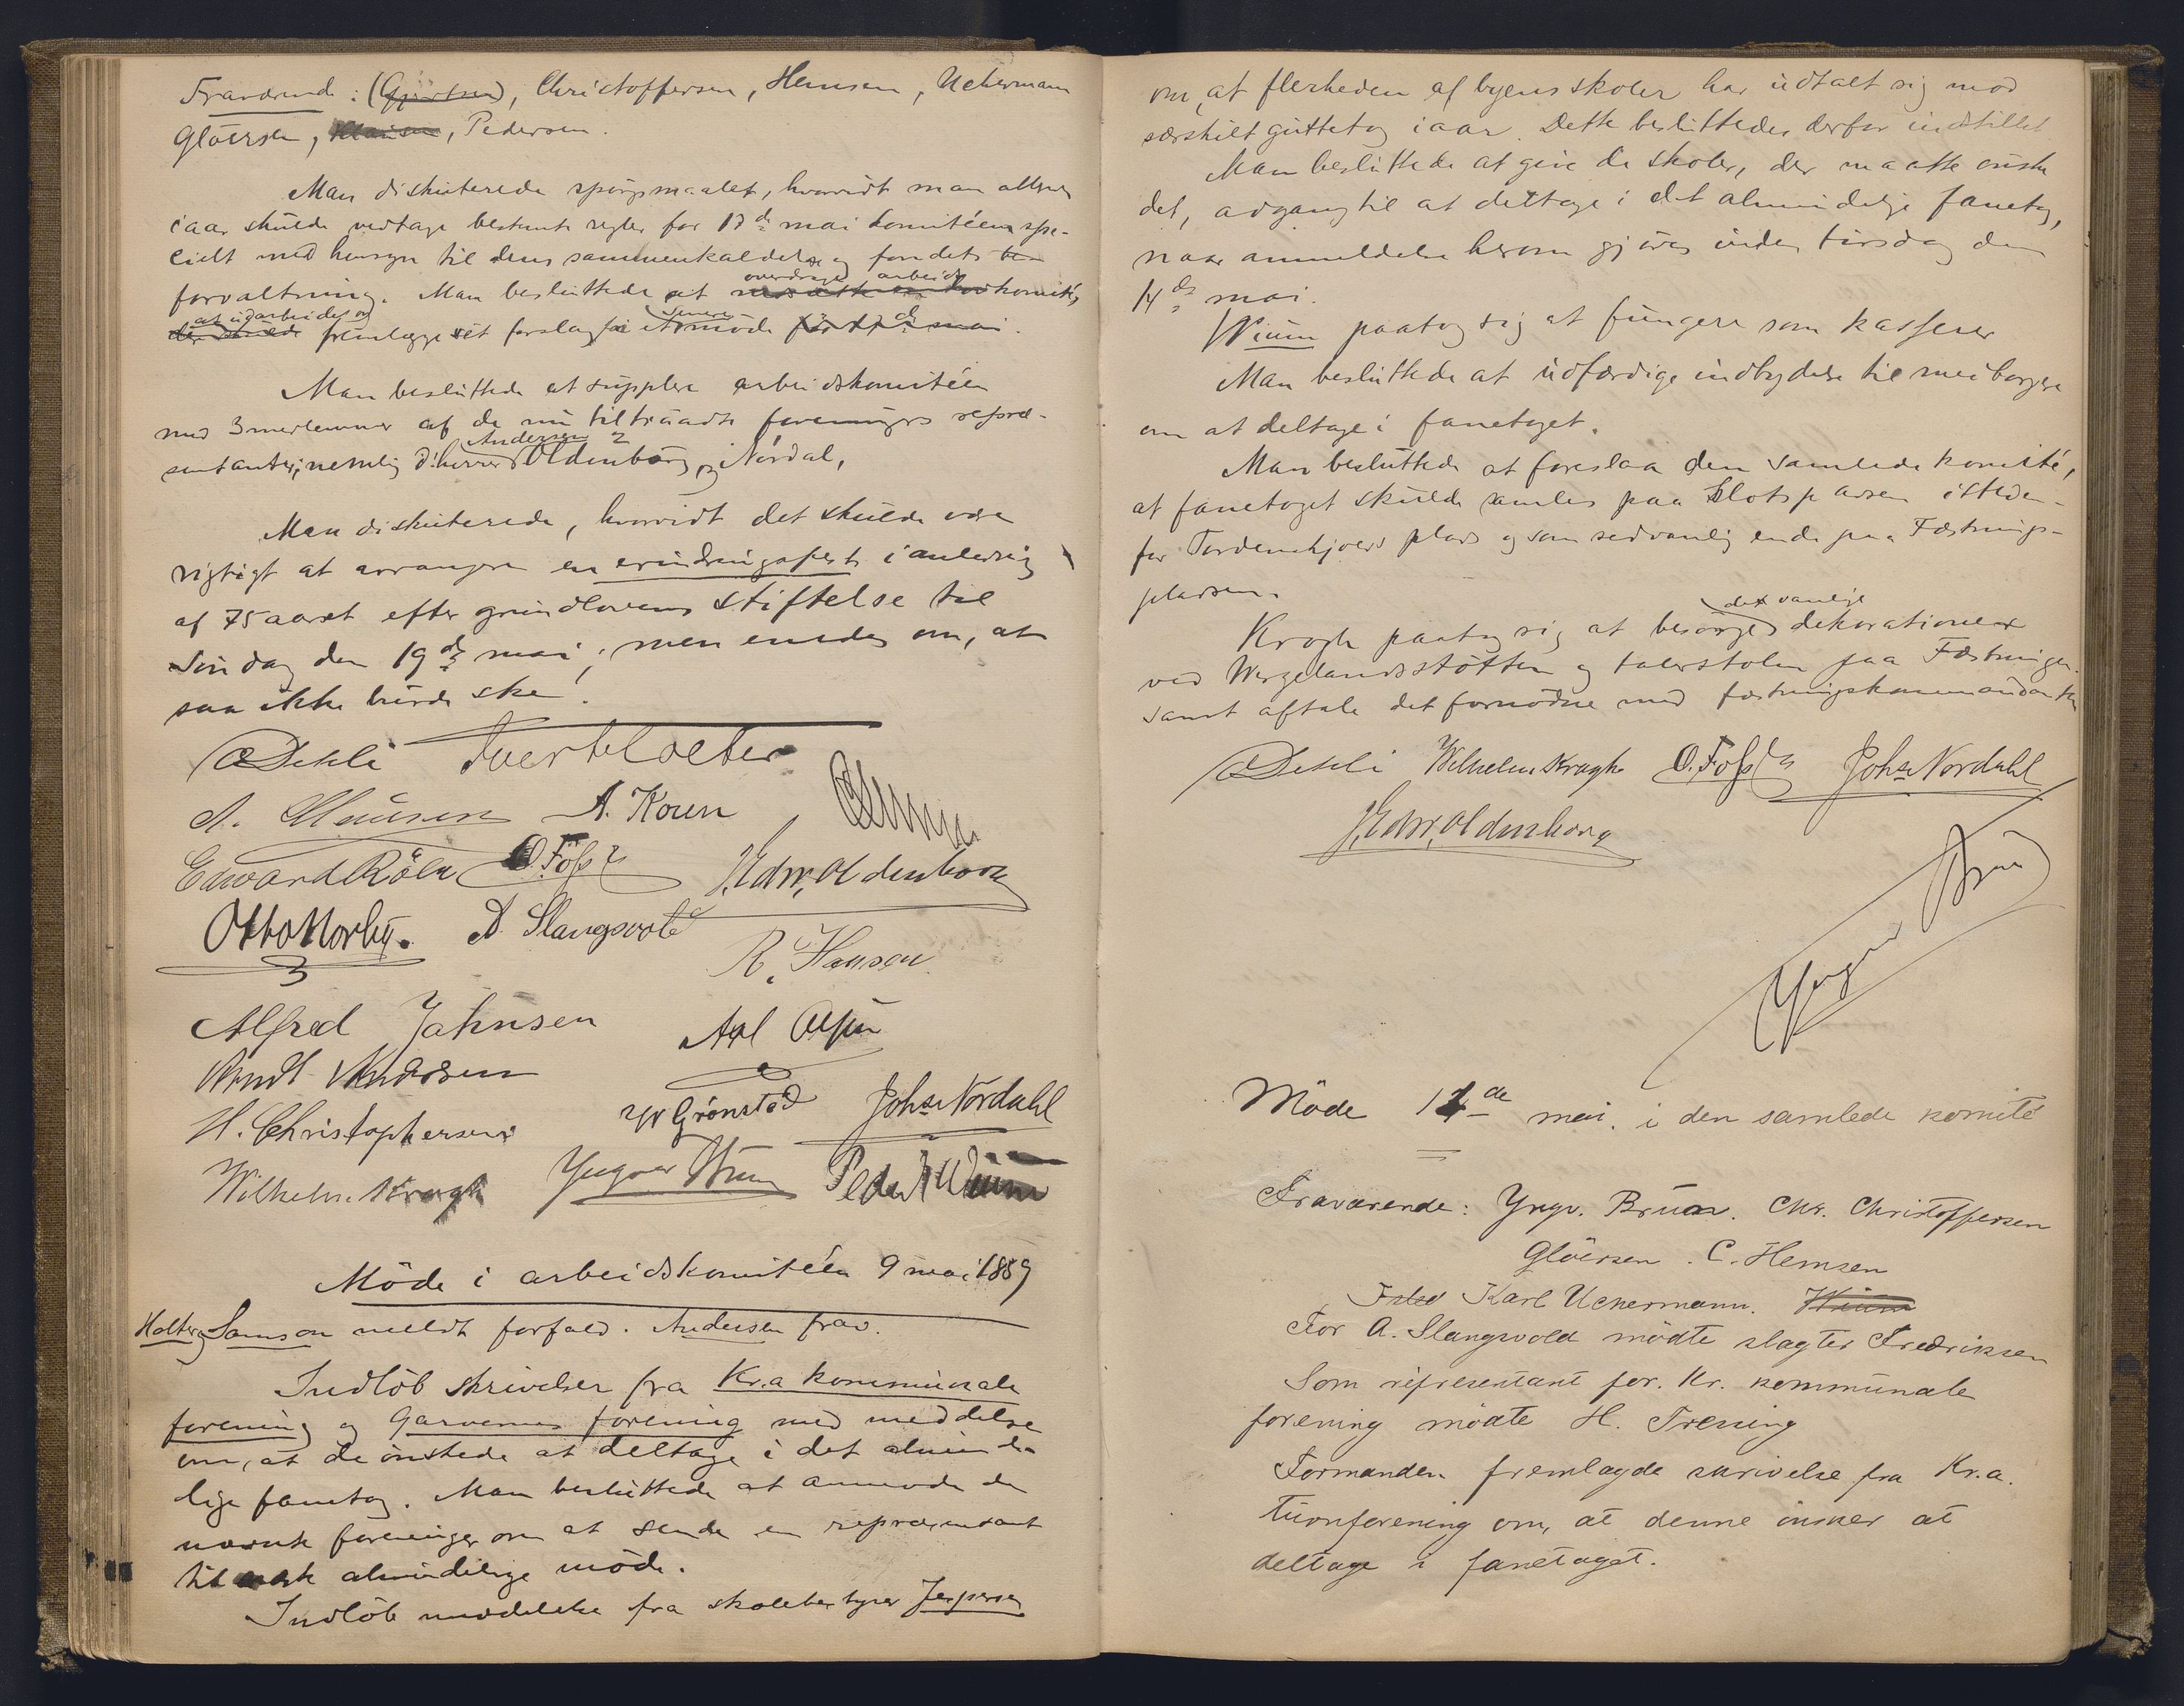 Fraværende: (Gjertsen), Christoffersen, Hemsen, Uchermann
Gløersen, Klausen, Pedersen.
Man diskuterede spørgsmaalet, hvorvidt man allerede
iaar skulde vedtage bestemte regler for 17de mai komitéen, spe-
cielt med hensyn til dens sammenkaldelse og fondets
forvaltning. Man besluttede at overdrage arbeidskomitéen
at udarbeide og
fremlægge et forslag paa et senere møde før 17de mai.
Man besluttede at supplere arbeidskomitéen
med 3 medlemmer af de nu tiltraadte foreningers repræ-
sentanter, nemlig d'herrer Andersen, Oldenborg og Nordal,
Man diskuterede, hvorvidt det skulde være
rigtigt at arrangere en erindringsfest i anledning
af 75 aaret efter grundlovens stiftelse til
Søndag den 19de mai, men enedes om, at
saa ikke burde ske!
O Dehli Ivert Holter
A. Clausen A. Koren
Edward Röln O. Foss Edw. Oldenborg
Otto Norby. A. Slangsvold
R. Hansen
Alfred Jahnsen Axl
Arndt Andersen
H. Christophersen W Grønstad Johs Nordahl
Wilhelm Kragh Yngvar Bruun Peder Wiium
Møde i arbeidskomitéen 9 mai 1889
Holter og Samson meldt forfald. Andersen frav.
Indløb skrivelser fra Kr.a kommunale
forening og Garvernes forening med meddelse
om, at de ønskede at deltage i det alminde-
lige fanetog. Man besluttede at anmode de
nævnte foreninger om at sende en repræsentant
til almindelige møde.
Indløb meddelelse fra skolebestyrer Jespersen
om, at flerheden af byens skoler har udtalt sig mod
særskilt guttetog iaar. Dette besluttedes derfor indstillet
Man besluttede at give de skoler, der maatte ønske
det, adgang til at deltage i det almindelige fanetog,
naar anmeldelse herom gjøres inden tirsdag den
14de mai.
Wiium paatog sig at fungere som kasserer
Man besluttede at udfærdige indbydelse til medborgere
om at deltage i fanetoget.
Man besluttede at foreslaa den samlede komité,
at fanetoget skulde samles paa Slotspladsen isteden-
for Tordenskjolds plads og som sedvanlig ende paa Fæstnings-
pladsen.
Krogh paatog sig at besørge det vanlige dekorationer
ved Wergelandsstøtten og talerstolen paa Fæstningen
samt aftale det fornødne med fæstningskommandanten
O Dehli Wilhelm Kragh O. Foss Johs Nordahl
Edw. Oldenborg
Yngvar Bruun
Møde 11de mai. i den samlede komité
Fraværende: Yngv. Bruun. Chr. Christoffersen
Gløersen. C. Hemsen
Karl Uchermann. Wiium
For A. Slangsvold mødte slagter Fredriksen
Som representant for. Kr. kommunale
forening mødte H. Trening
Formanden fremlagde skrivelse fra Kr.a.
turnforening om, at denne ønsker at
deltage i fanetoget.